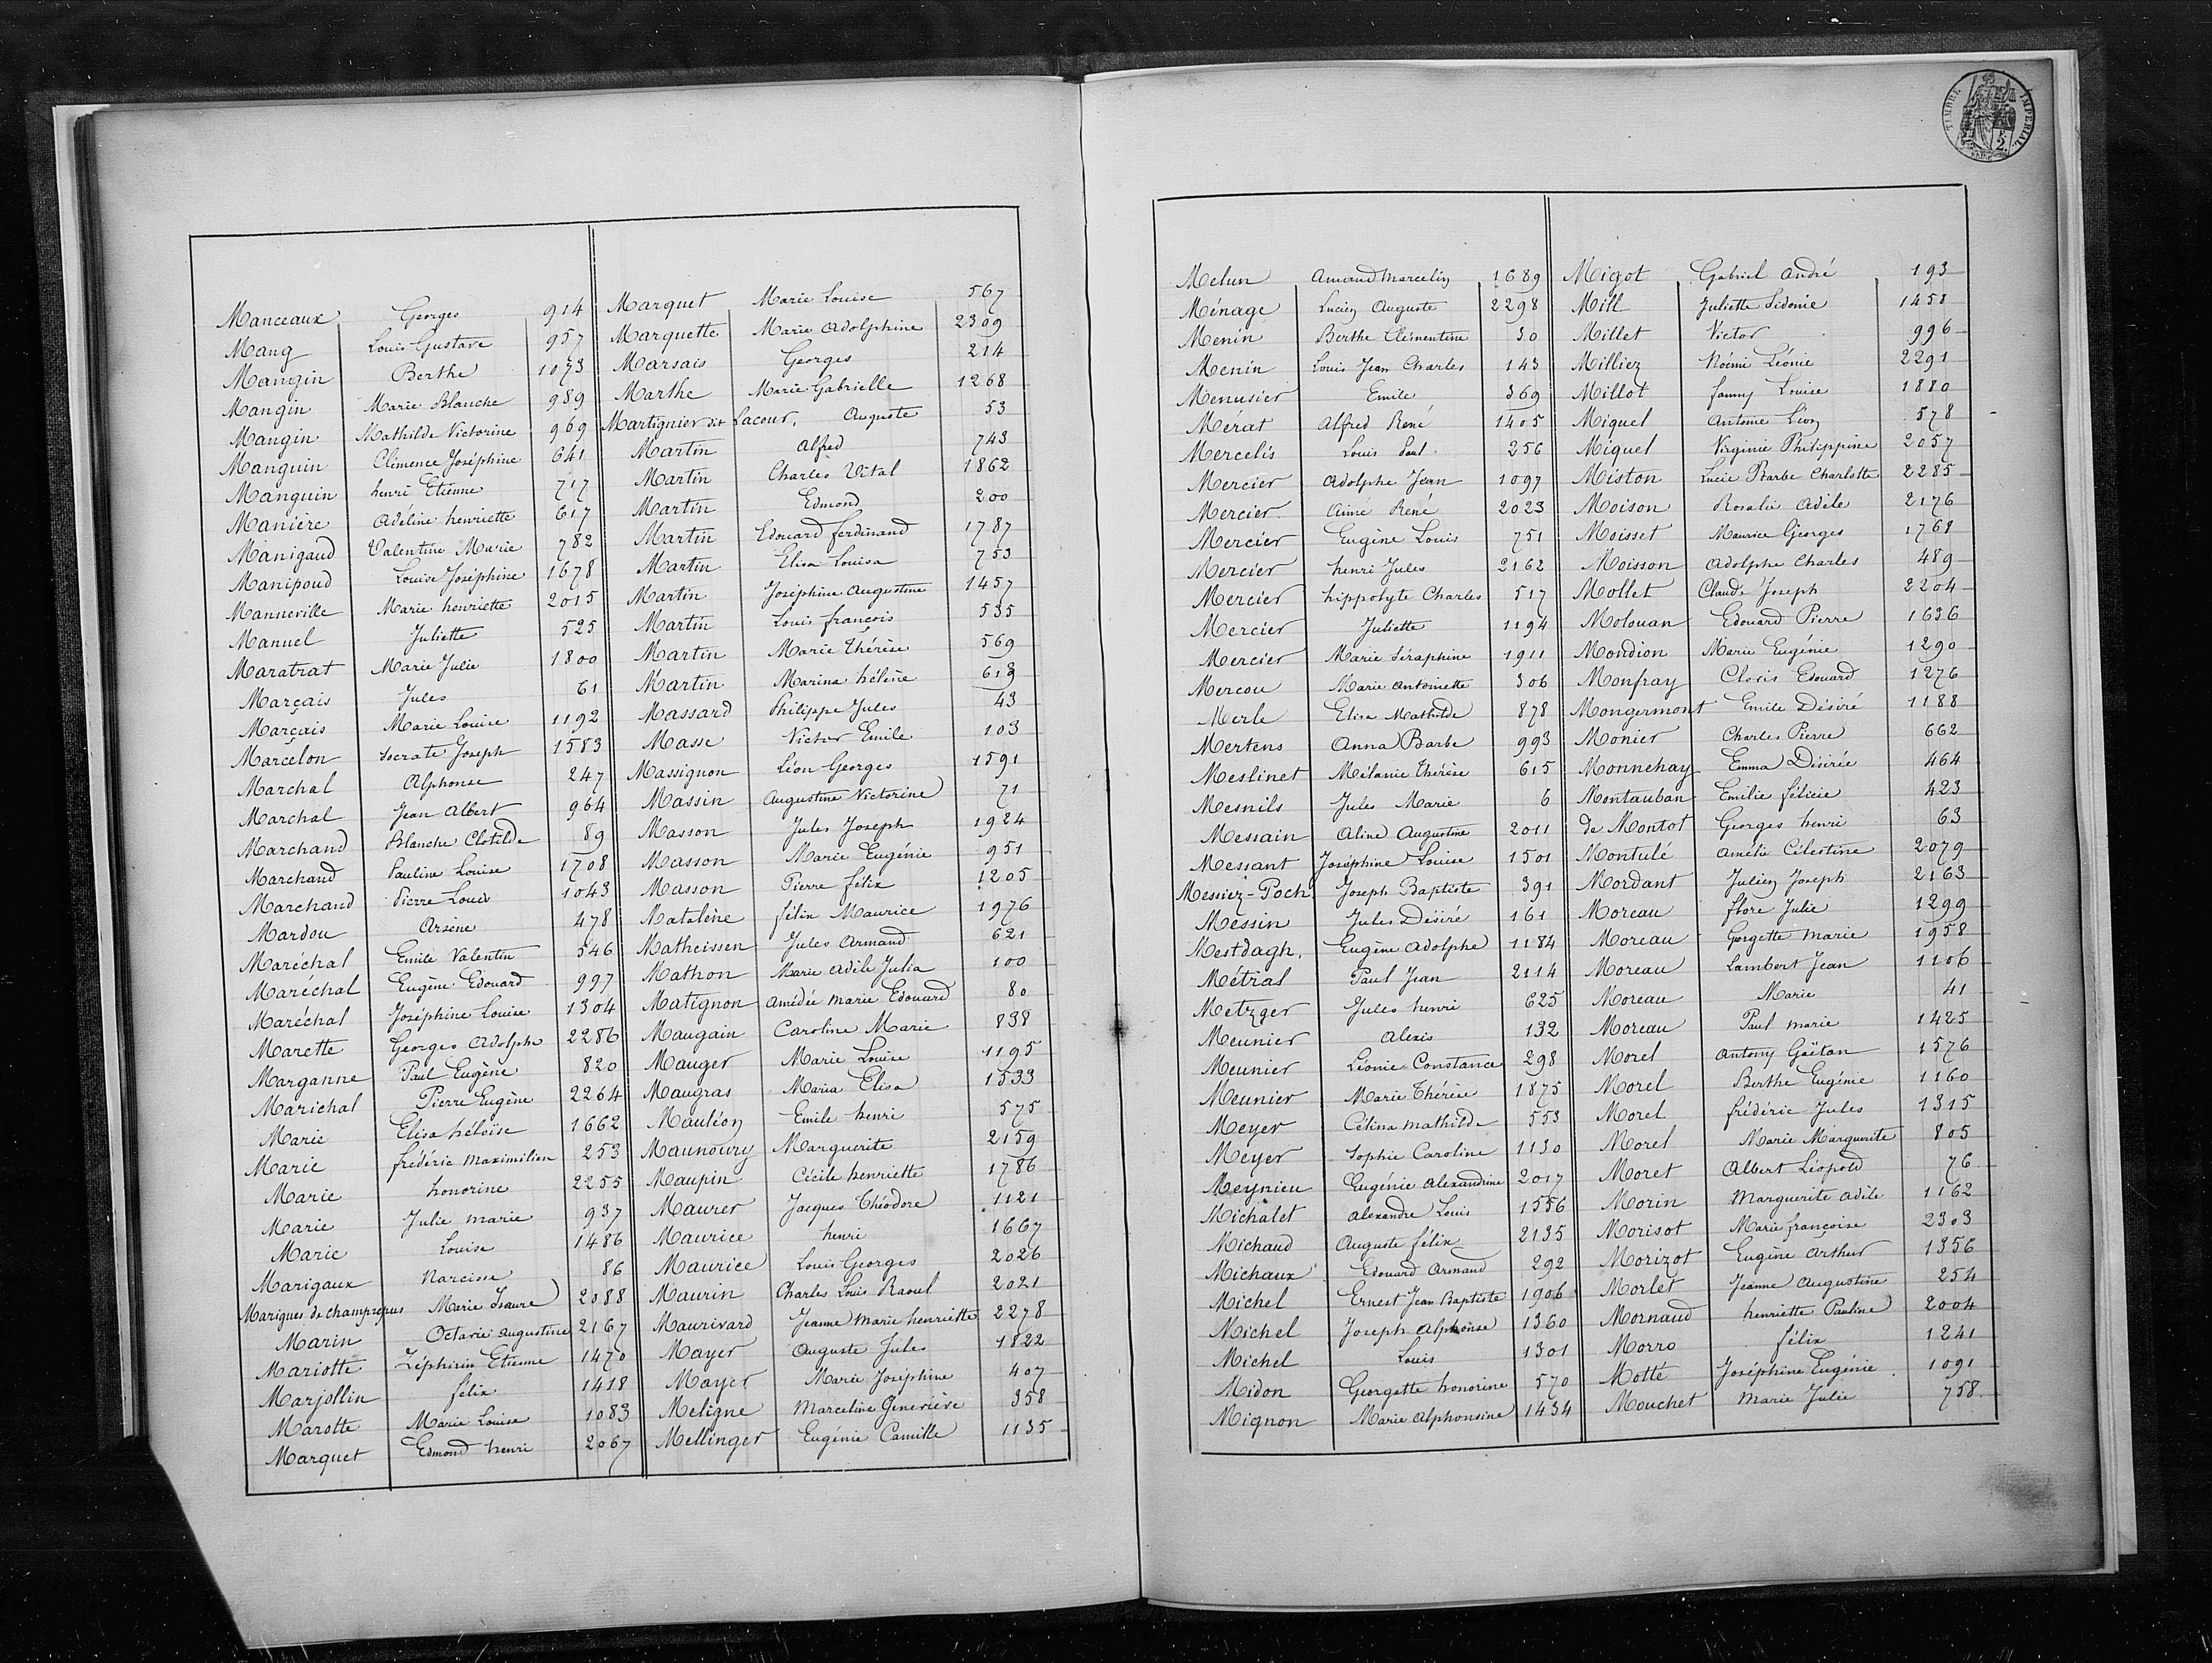 Manceaux Georges 914
Mang Louis Gustave 957
Mangin Berthe 1073
Mangin Marie Blanche 989
Mangin Mathilde Victorine 969
Manguin Clémence Joséphine 641
Manguin henri Etienne 717
Manière Adéline henriette 617
Manigaud Valentine Marie 782
Manipoud Louise Joséphine 1678
Manneville Marie henriette 2015
Manuel Juliette 525
Maratrat Marie Julie 1800
Marçais Jules 61
Marçais Marie Louise 1192
Marcelon Socrate Joseph 1583
Marchal Alphonse 247
Marchal Jean Albert 964
Marchand Blanche Clotilde 89
Marchand Pauline Louise 1708
Marchand Pierre Louis 1043
Mardou Arsène 478
Maréchal Emile Valentin 546
Maréchal Eugène Edouard 997
Maréchal Joséphine Louise 1304
Marette Georges Adolphe 2286
Marganne Paul Eugène 820
Marichal Pierre Eugène 2264
Marie Elisa héloïse 1662
Marie frédéric Maximilien 253
Marie honorine 2255
Marie Julie marie 937
Marie Louise 1486
Marigaux Narcisse 86
Marigues de champrepus Marie Isaure 2088
Marin Octavie augustine 2167
Mariotte Zéphirin Etienne 1470
Marjollin félix 1418
Marotte Marie Louise 1083
Marquet Edmond henri 2067
Marquet Marie Louise 567
Marquette Marie Adolphine 2309
Marsais Georges 214
Marthe Marie Gabrielle 1268
Martignier dit Lacour, Auguste 53
Martin Alfred 743
Martin Charles Vital 1862
Martin Edmond 200
Martin Edouard ferdinand 1787
Martin Elisa Louisa 753
Martin Joséphine Augustine 1457
Martin Louis françois 535
Martin Marie Thérèse 569
Martin Marina hélène 613
Massard Philippe Jules 43
Masse Victor Emile 103
Massignon Léon Georges 1591
Massin Augustine Victorine 71
Masson Jules Joseph 1924
Masson Marie Eugénie 951
Masson Pierre félix 1205
Matalène félix Maurice 1976
Matheissen Jules Armand 621
Mathon Marie Adèle Julia 100
Matignon Amédée marie Edouard 80
Maugain Caroline Marie 838
Mauger Marie Louise 1195
Maugras Maria Elisa 1533
Mauléon Emile henri 575
Maunoury Marguerite 2159
Maupin Cécile henriette 1786
Maurer Jacques Théodore 1121
Maurice henri 1667
Maurice Louis Georges 2026
Maurin Charles Louis Raoul 2021
Maurivard Jeanne Marie henriette 2278
Mayer Auguste Jules 1822
Mayer Marie Joséphine 407
Meligne Marceline Geneviève 358
Mellinger Eugénie Camille 1135
TIMBRE IMPERIAL
2
Melun Amand Marcelin 1689
Ménage Lucien Auguste 2298
Menin Berthe Clémentine 30
Menin Louis Jean Charles 143
Menusier Emile 369
Mérat Alfred René 1405
Mercelis Louis Paul 256
Mercier Adolphe Jean 1097
Mercier Aimé René 2023
Mercier Eugène Louis 751
Mercier henri Jules 2162
Mercier hippolyte Charles 517
Mercier Juliette 1194
Mercier Marie Séraphine 1911
Mercou Marie Antoinette 306
Merle Elisa Mathilde 878
Mertens Anna Barbe 993
Meslinet Mélanie Thérèse 615
Mesnils Jules Marie 6
Messain Aline Augustine 2011
Messant Joséphine Louise 1501
Messiez-Poch Joseph Baptiste 391
Messin Jules Désiré 161
Mestdagh, Eugène Adolphe 1184
Métras Paul Jean 2114
Metzger Jules henri 625
Meunier Alexis 132
Meunier Léonie Constance 298
Meunier Marie Thérèse 1875
Meyer Célina mathilde 553
Meyer Sophie Caroline 1130
Meynieu Eugénie Alexandrine 2017
Michalet alexandre Louis 1556
Michaud Auguste félix 2135
Michaux Edouard Armand 292
Michel Ernest Jean Baptiste 1906
Michel Joseph Alphonse 1360
Michel Louis 1301
Midon Georgette honorine 570
Mignon Marie Alphonsine 1434
Migot Gabriel André 193
Mill Juliette Sidonie 1458
Millet Victor 996
Milliez Noémi Léonie 2291
Millot fanny Louise 1880
Miquel Antoine Léon 578
Miquel Virginie Philippine 2057
Miston Lucie Barbe Charlotte 2285
Moison Rosalie Adèle 2176
Moisset Maurice Georges 1768
Moisson Adolphe Charles 489
Mollet Claude Joseph 2204
Molouan Edouard Pierre 1636
Mondion Marie Eugénie 1290
Monfray Clovis Edouard 1276
Mongermont Emile Désiré 1188
Monier Charles Pierre 662
Monnehay Emma Désirée 464
Montauban Emilie félicie 423
de Montot Georges henri 63
Montulé Amélie Célestine 2079
Mordant Julien Joseph 2163
Moreau flore Julie 1299
Moreau Georgette marie 1958
Moreau Lambert Jean 1106
Moreau Marie 41
Moreau Paul marie 1425
Morel Antony Gaëtan 1576
Morel Berthe Eugénie 1160
Morel frédéric Jules 1315
Morel Marie Marguerite 805
Moret Albert Léopold 76
Morin Marguerite Adèle 1162
Morisot Marie françoise 2303
Morizot Eugène Arthur 1356
Morlet Jeanne Augustine 254
Mornaud henriette Pauline 2004
Morro félix 1241
Motte Joséphine Eugénie 1091
Mouchet Marie Julie 758